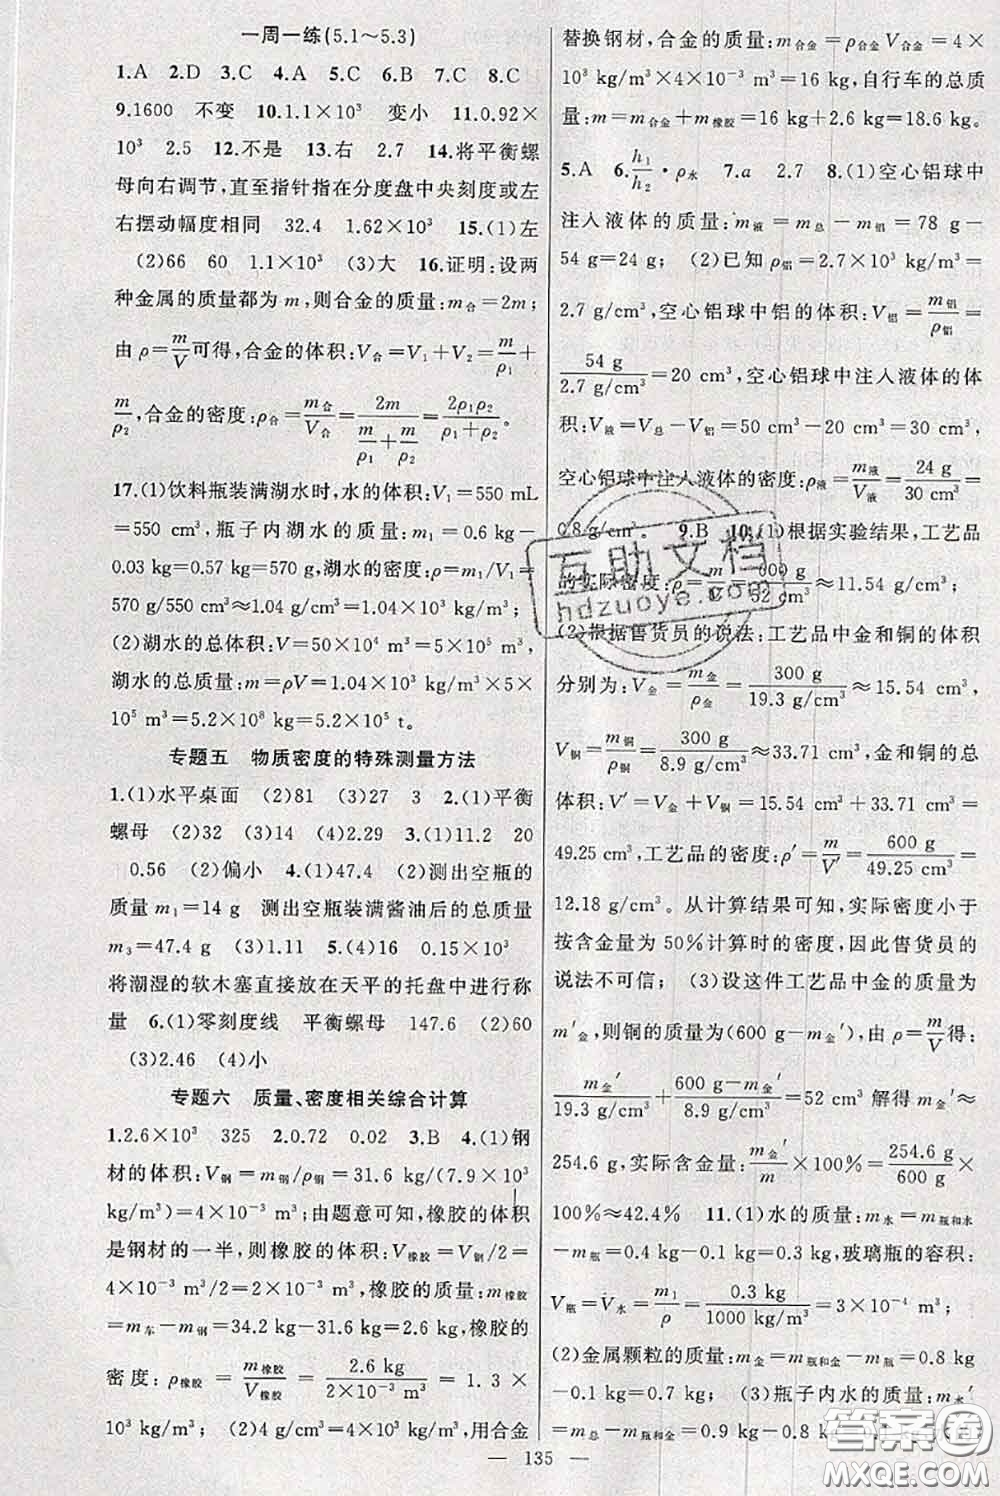 一周一练(5.1～5.3)
1.A 2.D 3.C 4.A 5.C 6.B 7.C 8.C
9.1600 不变 10.1.1×10³ 变小 11.0.92×
10³ 2.5 12.不是 13.右 2.7 14.将平衡螺
母向右调节,直至指针指在分度盘中央刻度或左
右摆动幅度相同 32.4 1.62×10³ 15.(1)左
(2)66 60 1.1×10³ (3)大 16.证明:设两
种金属的质量都为m,则合金的质量:m合=2m;
由ρ=m/V可得,合金的体积:V合=V₁+V₂=m/ρ₁+
m/ρ₂,合金的密度:ρ合=m合/V合=2m/(m/ρ₁+m/ρ₂)=2ρ₁ρ₂/(ρ₁+ρ₂)。
17.(1)饮料瓶装满湖水时,水的体积:V₁=550 mL
=550 cm³,瓶子内湖水的质量:m₁=0.6 kg-
0.03 kg=0.57 kg=570 g,湖水的密度:ρ=m₁/V₁=
570 g/550 cm³≈1.04 g/cm³=1.04×10³ kg/m³;
(2)湖水的总体积:V=50×10⁴ m³=5×10⁵ m³,
湖水的总质量:m=ρV=1.04×10³ kg/m³×5×
10⁵ m³=5.2×10⁸ kg=5.2×10⁵ t。
专题五 物质密度的特殊测量方法
1.(1)水平桌面 (2)81 (3)27 3 2.(1)平衡
螺母 (2)32 (3)14 (4)2.29 3.(1)11.2 20
0.56 (2)偏小 4.(1)47.4 (2)测出空瓶的
质量m₁=14 g 测出空瓶装满酱油后的总质量
m₃=47.4 g (3)1.11 5.(4)16 0.15×10³
将潮湿的软木塞直接放在天平的托盘中进行称
量 6.(1)零刻度线 平衡螺母 147.6 (2)60
(3)2.46 (4)小
专题六 质量、密度相关综合计算
1.2.6×10³ 325 2.0.72 0.02 3.B 4.(1)钢
材的体积:V钢=m钢/ρ钢=31.6 kg/(7.9×10³
kg/m³)=4×10⁻³ m³;由题意可知,橡胶的体积
是钢材的一半,则橡胶的体积:V橡胶=V钢/2=
4×10⁻³ m³/2=2×10⁻³ m³,橡胶的质量:m橡胶
=m车-m钢=34.2 kg-31.6 kg=2.6 kg,橡胶的
密度:ρ橡胶=m橡胶/V橡胶=2.6 kg/(2×10⁻³ m³)=1.3×
10³ kg/m³; (2)4 g/cm³=4×10³ kg/m³,用合金
替换钢材,合金的质量:m合金=ρ合金V合金=4×
10³ kg/m³×4×10⁻³ m³=16 kg,自行车的总质
量:m=m合金+m橡胶=16 kg+2.6 kg=18.6 kg。
5.A 6.h₁/h₂·ρ水 7.a 2.7 8.(1)空心铝球中
注入液体的质量:m液=m总-m铝=78 g-
54 g=24 g; (2)已知ρ铝=2.7×10³ kg/m³=
2.7 g/cm³,空心铝球中铝的体积:V铝=m铝/ρ铝=
54 g/(2.7 g/cm³)=20 cm³,空心铝球中注入液体的体
积:V液=V总-V铝=50 cm³-20 cm³=30 cm³,
空心铝球中注入液体的密度:ρ液=m液/V液=24 g/30 cm³=
0.8 g/cm³。 9.B 10.(1)根据实验结果,工艺品
的实际密度:ρ=m/V=600 g/52 cm³≈11.54 g/cm³;
(2)根据售货员的说法:工艺品中金和铜的体积
分别为:V金=m金/ρ金=300 g/(19.3 g/cm³)≈15.54 cm³,
V铜=m铜/ρ铜=300 g/(8.9 g/cm³)≈33.71 cm³,金和铜的总
体积:V′=V金+V铜=15.54 cm³+33.71 cm³=
49.25 cm³,工艺品的密度:ρ′=m/V′=600 g/49.25 cm³=
12.18 g/cm³。从计算结果可知,实际密度小于
按含金量为50%计算时的密度,因此售货员的
说法不可信; (3)设这件工艺品中金的质量为
m′金,则铜的质量为(600 g-m金′),由ρ=m/V得:
m金′/(19.3 g/cm³)+(600 g-m金′)/(8.9 g/cm³)=52 cm³ 解得m金′≈
254.6 g,实际含金量:m金′/m×100%=254.6 g/600 g×
100%≈42.4% 11.(1)水的质量:m水=m瓶和水
-m瓶=0.4 kg-0.1 kg=0.3 kg,玻璃瓶的容积:
V瓶=V水=m₁/ρ=0.3 kg/(1000 kg/m³)=3×10⁻⁴ m³;
(2)金属颗粒的质量:m金=m瓶和金-m瓶=0.8 kg
-0.1 kg=0.7 kg; (3)瓶子内水的质量:m水′
=m总-m瓶和金=0.9 kg-0.8 kg
互助文档
hdzuoye.com
答案圈
MXQE.COM
— 135 —